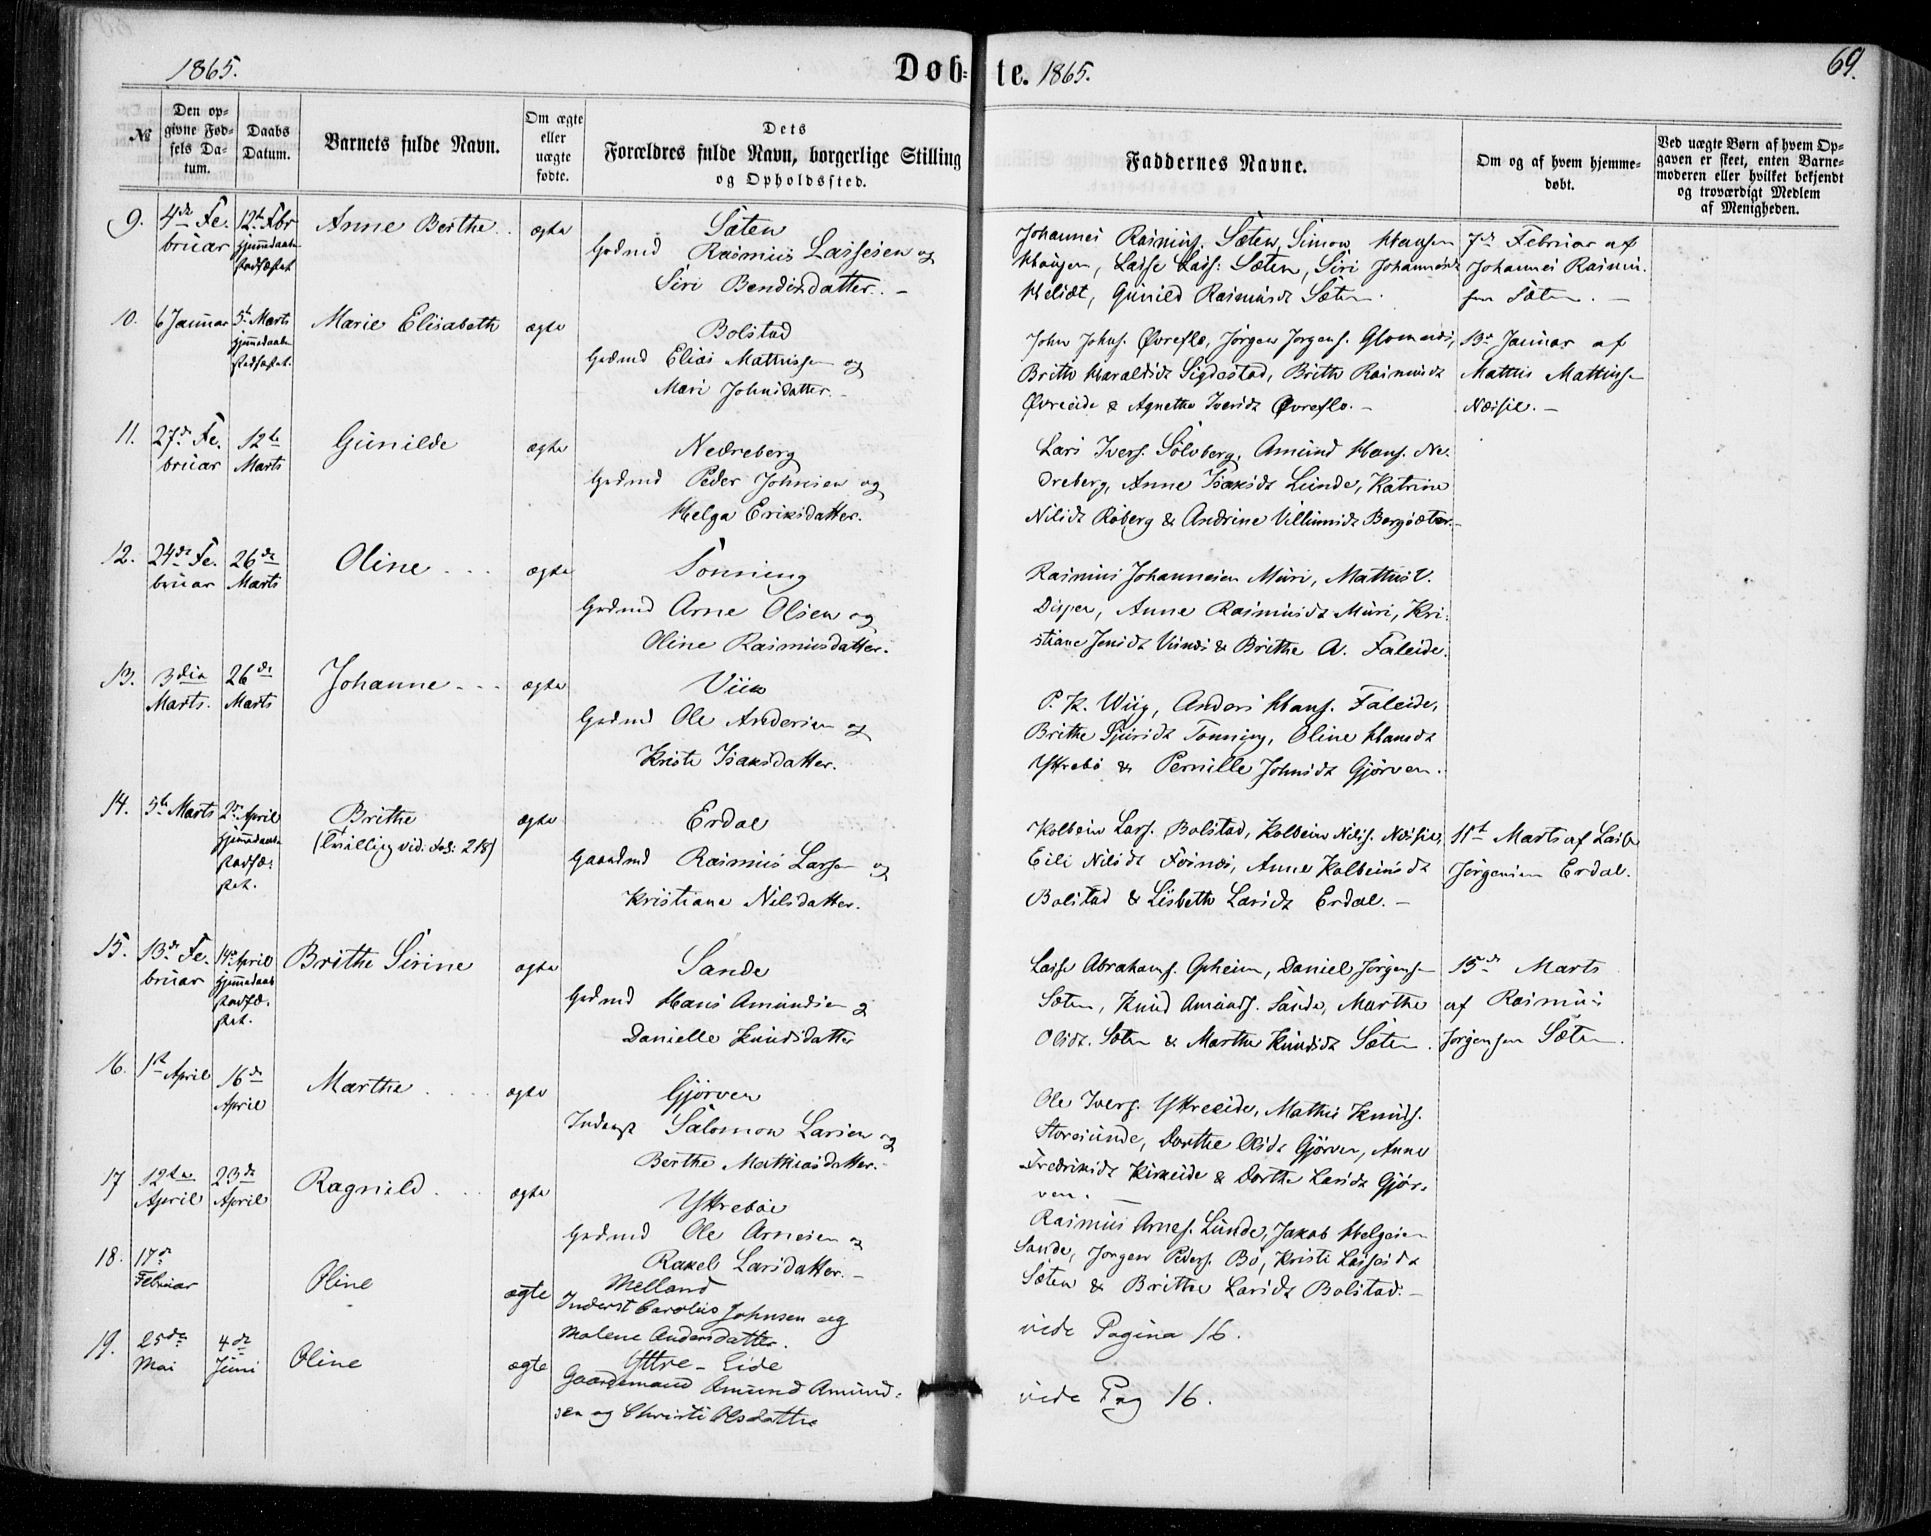 1865.
Døb-te. 1865.
69.
№
Den opgivne Fødsels Datum.
Daabs Datum.
Barnets fulde Navn.
Om ægte eller uægte fødte.
Dets Forældres fulde Navn, borgerlige Stilling og Opholdssted.
Faddernes Navne.
Om og af hvem hjemmedøbt.
Ved uægte Børn af hvem Opgaven er skeet, enten Barnemoderen eller hvilket bekjendt og troværdigt Medlem af Menigheden.
9. 4de Februar 12te Fbr hjemmedaaben stadfæstet Anne Berthe ægte
Sæten
Gadmd Rasmus Lassesen og
Siri Bendixdatter. -
Johannes Rasmuss. Sæten, Simon Hansen
Haugen, Lasse Lass: Sæten, Siri Johannesdt
Gunild Rasmusdt Sæten.
7de Februar af
Johannes Rasmussen Sæten. -
10. 6 Januar 5te Marts hjemmedaaben stadfæstet. Marie Elisabeth ægte
Bolstad
Gadmd Elias Mattissen og
Mari Johnsdatter. -
John Johns. Øvreflo, Jørgen Jørgens. Glomnes,
Brithe Haraldsdt Sigdestad, Brithe Rasmusdt
Øvreeide & Agnethe Iversdt Øvreflo. -
13de Januar af
Mattis Mattissen
Næssie. -
11. 27de Februar 12te Marts Gunilde ægte
Nedreberg
Gadmd Peder Johnsen og
Helga Eriksdatter.
Lars Ivers. Solvberg, Amund Hans. Nedreberg, Anne Isaksdt Lunde, Katrine
Nilsdt Roberg & Andrine Villumsdt Bergsæter. -
12. 24de Februar 26de Marts Oline ægte
Tonning
Gadmd Arne Olsen og
Oline Rasmusdatter.
Rasmus Johannesen Muri, Mattis V.
Disper, Anne Rasmusdt Muri, Kristiane Jensdt Vines & Brithe A. Faleide.
13. 3die Marts. 26de Marts Johanne ægte
Viik
Gadmd Ole Andersen og
Kristi Isaksdatter.
P. K. Wiig, Anders Hans. Faleide,
Brithe Sjursdt Tonning, Oline Hansdt
Yttrebø & Pernille Johnsdt Gjørven.
14. 5te Marts 2de April hjemmedaaben stadfæstet. Brithe
(Tvilling vid: fol: 218) ægte
Erdal
Gaardmd Rasmus Larsen og
Kristiane Nilsdatter.
Kolbein Lars. Bolstad, Kolbein Nilss. Næssie,
Eili Nilsdt Fosnæs, Anne Kolbeinsdt
Bolstad & Lisbeth Larsdt Erdal. -
11te Marts af Lasse
Jørgensen Erdal.
15. 13de Februar 14de April hjemmedaab stadfæstet. Brithe Sirine ægte
Sande
Gadmd Hans Amundsen og
Danielle Knudsdatter
Lasse Abrahams. Opheim, Daniel Jørgensen
Sæten, Knud Amunds. Sande, Marthe
Olsdt. Sæten & Marthe Knudsdt Sæten.
15de Marts
af Rasmus
Jørgensen Sæten.
16. 1ste April 16de April Marthe ægte
Gjørven
Inderst Salomon Larsen og
Berthe Mathiasdatter. -
Ole Ivers. Yttreeide, Mathis Knuds.
Storesunde, Dorthe Olsdt Gjørven, Anne
Fredriksdt Kirkeide & Dorthe Larsdt Gjørven.
17 12te April 23de April Ragnild ægte
Yttrebøe
Gadmd Ole Arnesen og
Rakel Larsdatter. -
Rasmus Arnes. Lunde, Jakob Helgesen
Sande, Jørgen Peders. Bø, Kristi Lassesdt
Sæten & Brithe Larsdt Bolstad. -
18. 17de Februar Oline ægte
Melland
Inderst Carolus Johnsen og
Malene Andersdatter.
vide Pagina 16.
19. 25de Mai 4de Juni Oline ægte
Yttre-Eide
Gaardemand Amund Amundsen og Christi Olsdatter
vide Pag 16.